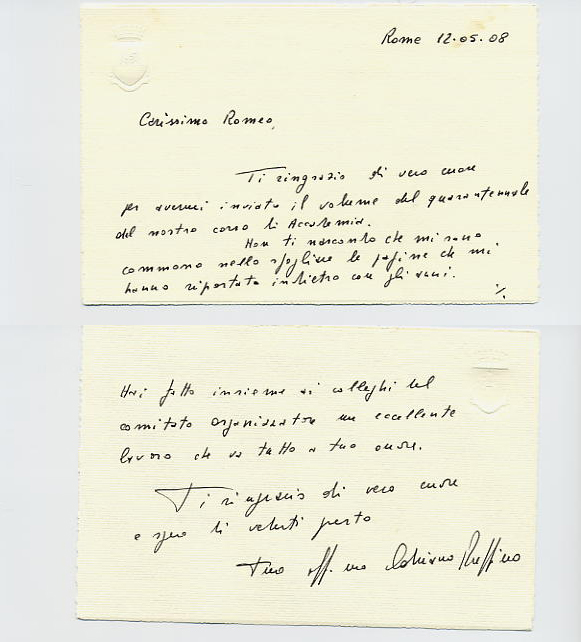 Roma 12.05.08
Carissimo Romeo,
Ti ringrazio di vero cuore
per avermi inviato il volume del quarantennale
del nostro corso di Accademia.
Non ti nascondo che mi sono
commosso nello sfogliare le pagine che mi
hanno riportato indietro con gli anni.
./.
Hai fatto insieme ai colleghi del
comitato organizzatore un eccellente
lavoro che va tutto a tuo onore.
Ti ringrazio di vero cuore
e spero di vederti presto
tuo aff.mo Adriano Ruffino